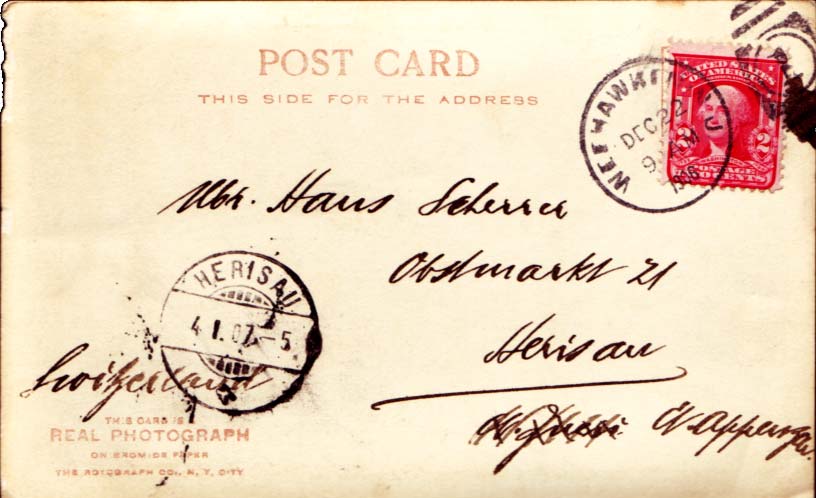 POST CARD
THIS SIDE FOR THE ADDRESS
WEEHAWKEN
DEC 22
9 AM
1906
UNITED STATES
OF AMERICA
2 2
POSTAGE
TWO CENTS
Mr. Hans Scherrer
Obstmarkt 21
Herisau
Ct. Appenzell
HERISAU
4.I.07.-5
Switzerland
THIS CARD IS A
REAL PHOTOGRAPH
ON BROMIDE PAPER
THE ROTOGRAPH CO., N. Y. CITY